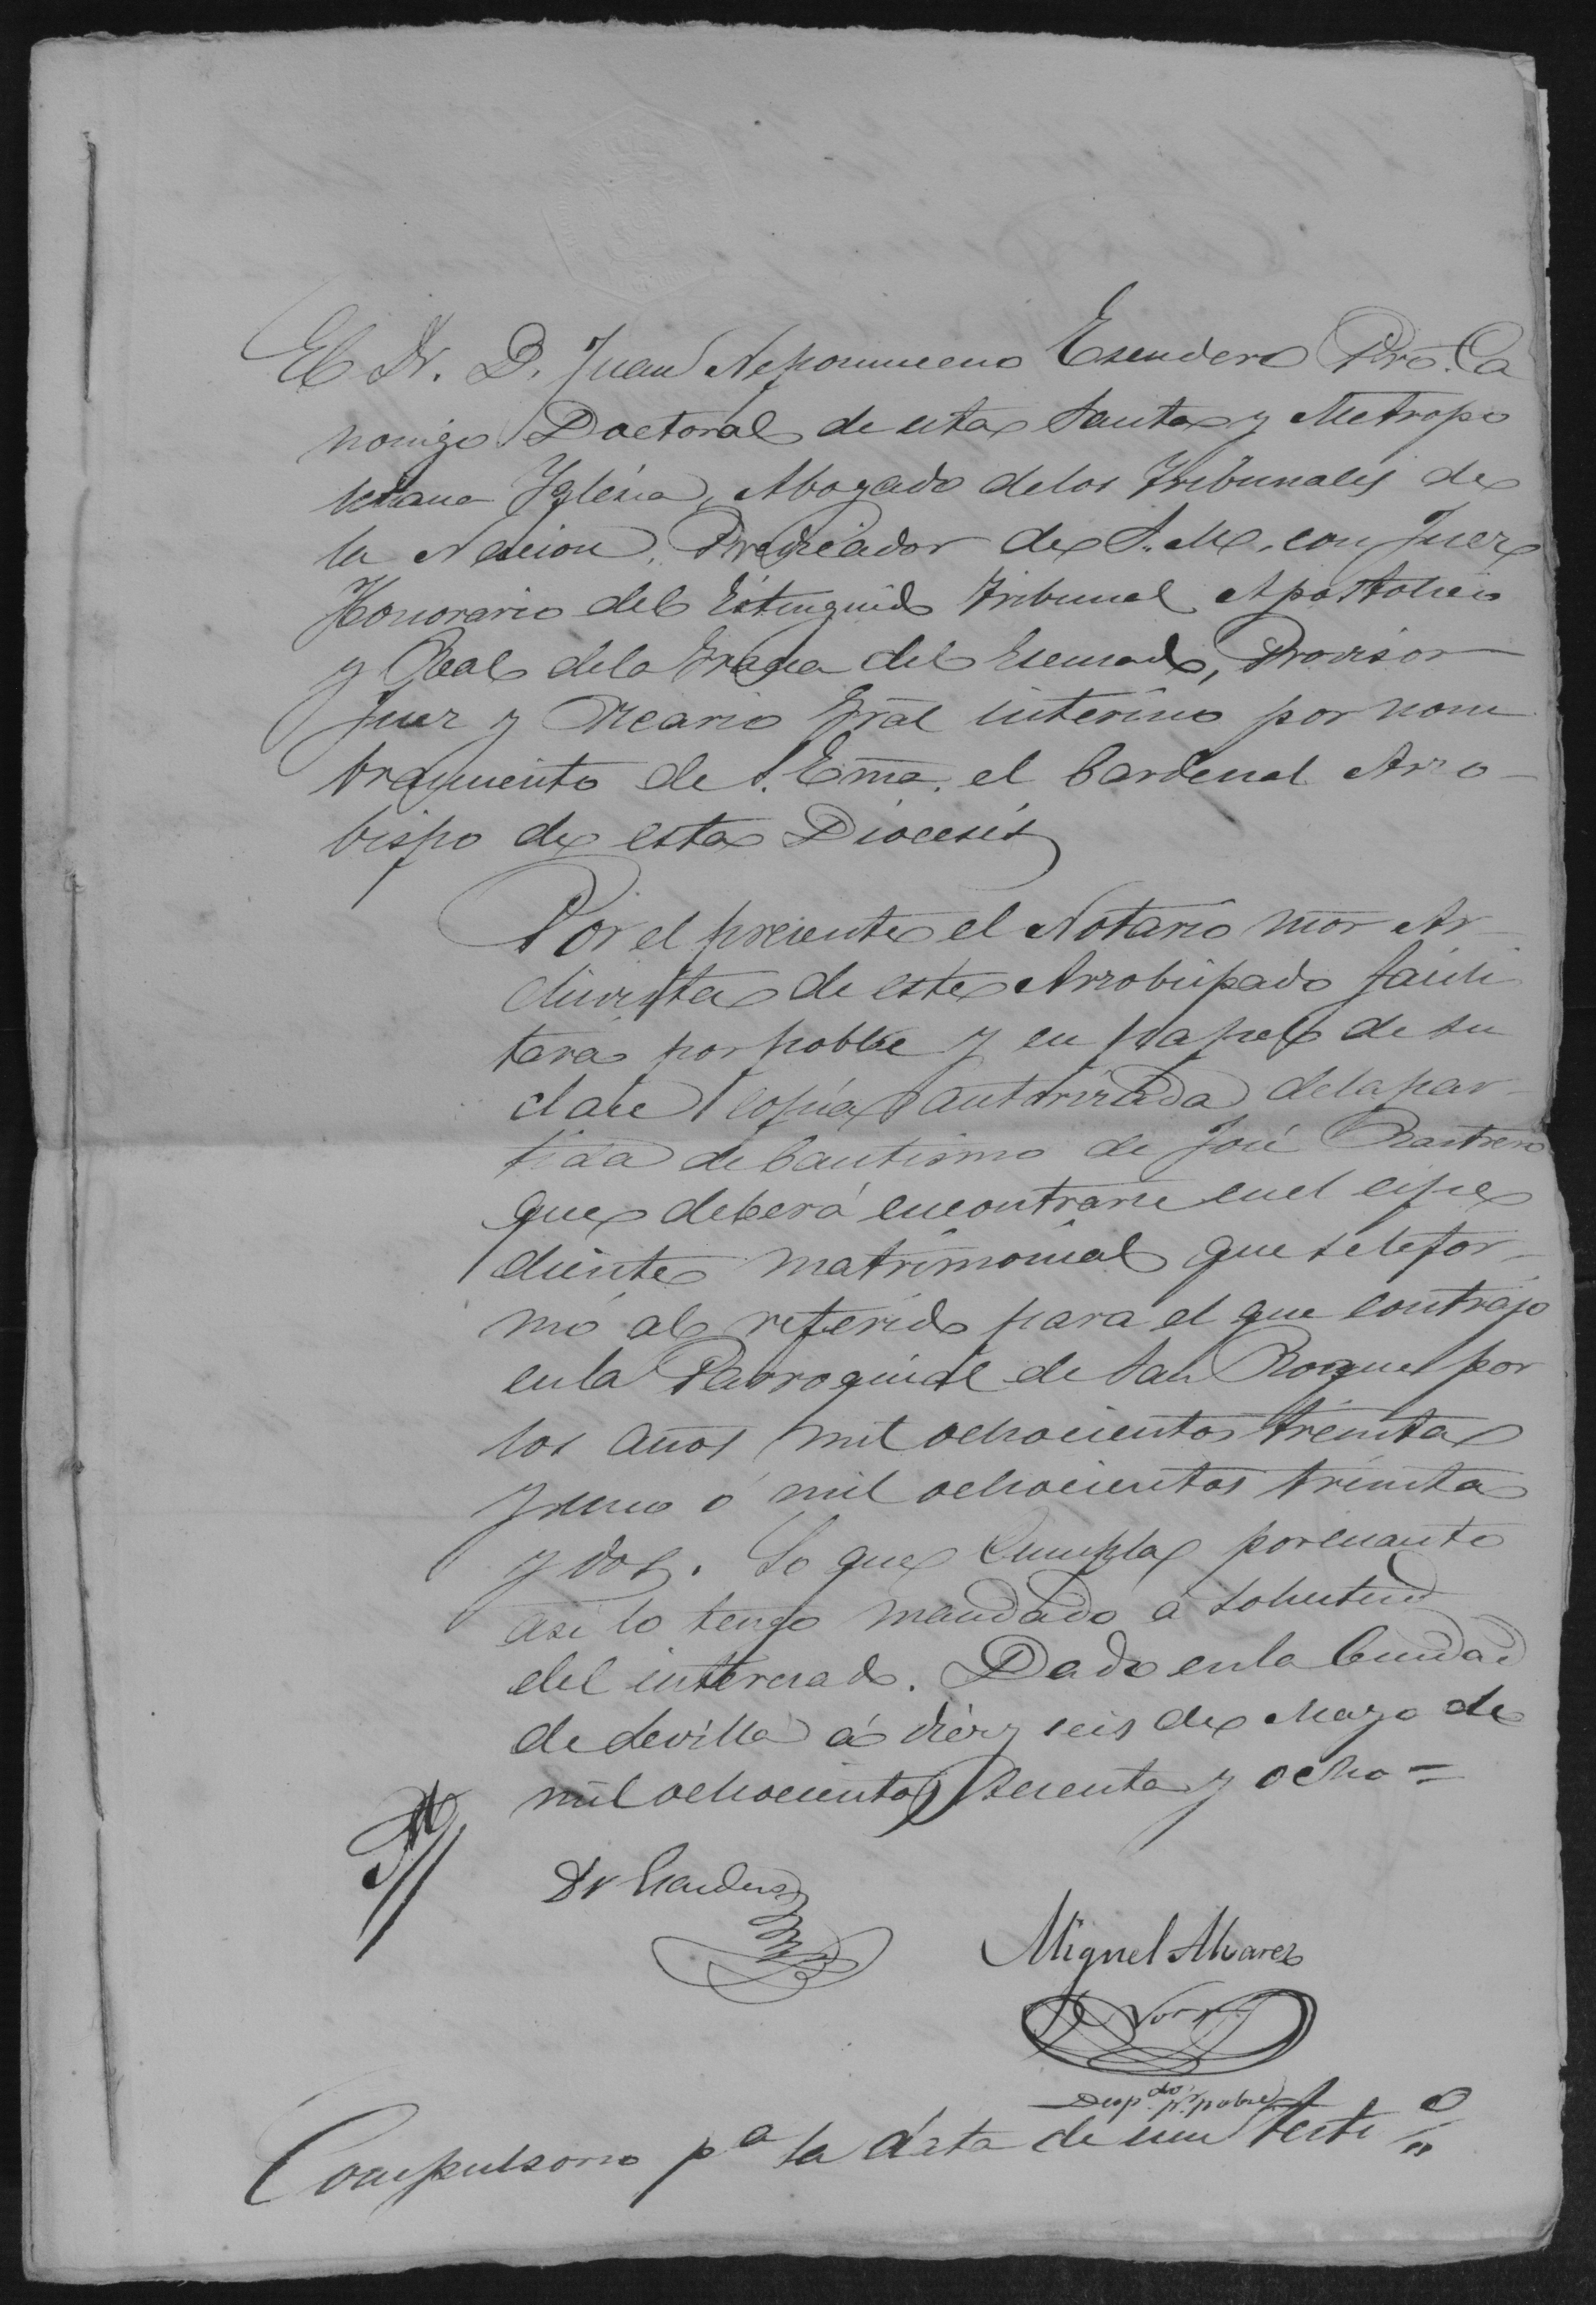 El Dr. D. Juan Nepomuceno Escudero Pbro. Ca
nonigo Doctoral de esta Santa y Metropo
litana Iglesia, Abogado de los Tribunales de
la Nacion, Predicador de S. M. con Juez
Honorario del Estinguido Tribunal Apostolico
y Real de la Gracia del Escusado, Provisor
Juez y Vicario Gral interino por nom
bramiento de S. Ema. el Cardenal Arzo-
bispo de esta Diocesis
Por el presente el Notario mor Ar-
chivista de este Arzobispado facili
tará por pobre y en papel de su
clase copia autorizada de la par-
tida de bautismo de José Rastrero
que deberá encontrarse en el espe
diente matrimonial que se le for-
mó al referido para el que contrajo
en la Parroquial de San Roque por
los años mil ochocientos treinta
y uno ó mil ochocientos treinta
y dos. Lo que cumpla por cuanto
asi lo tengo mandado á solicitud
del interesado. Dado en la Ciudad
de Sevilla á diez y seis de Mayo de
mil ochocientos sesenta y ocho =
Dr Escudero
Miguel Alvarez
Desp.do pr. pobre
Compulsorio pa la data de un testi.o